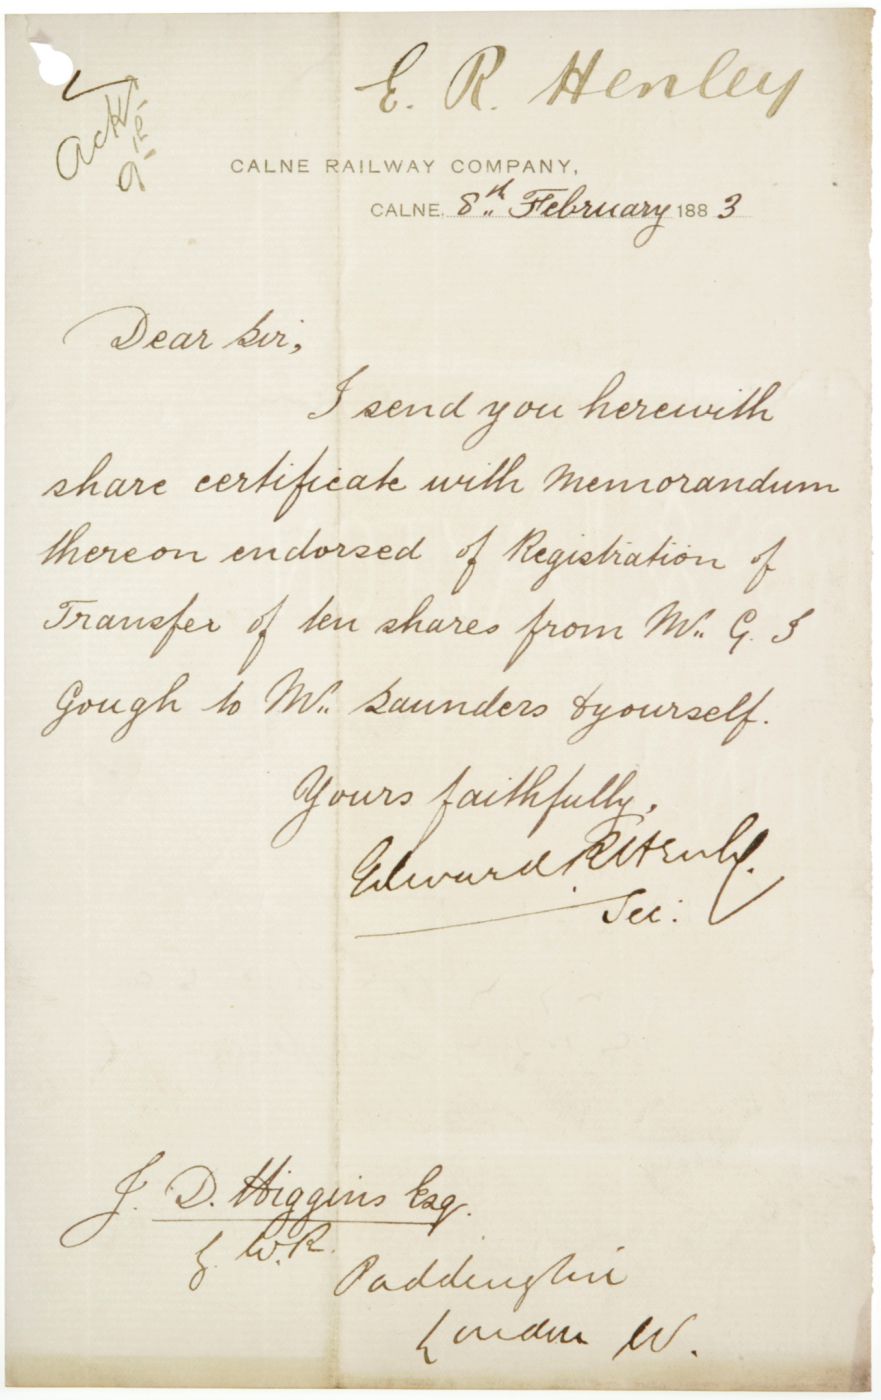 E. R. Henley
Ack
CALNE RAILWAY COMPANY,
CALNE. 8th February 1883
Dear Sir,
I send you herewith
share certificate with Memorandum
thereon endorsed of Registration of
Transfer of ten shares from Mr. G. J
Gough to Mr. Saunders & yourself.
Yours faithfully,
Edward R Henley.
Sec:
J. D. Higgins Esq.
G. W. R.
Paddington
London W.